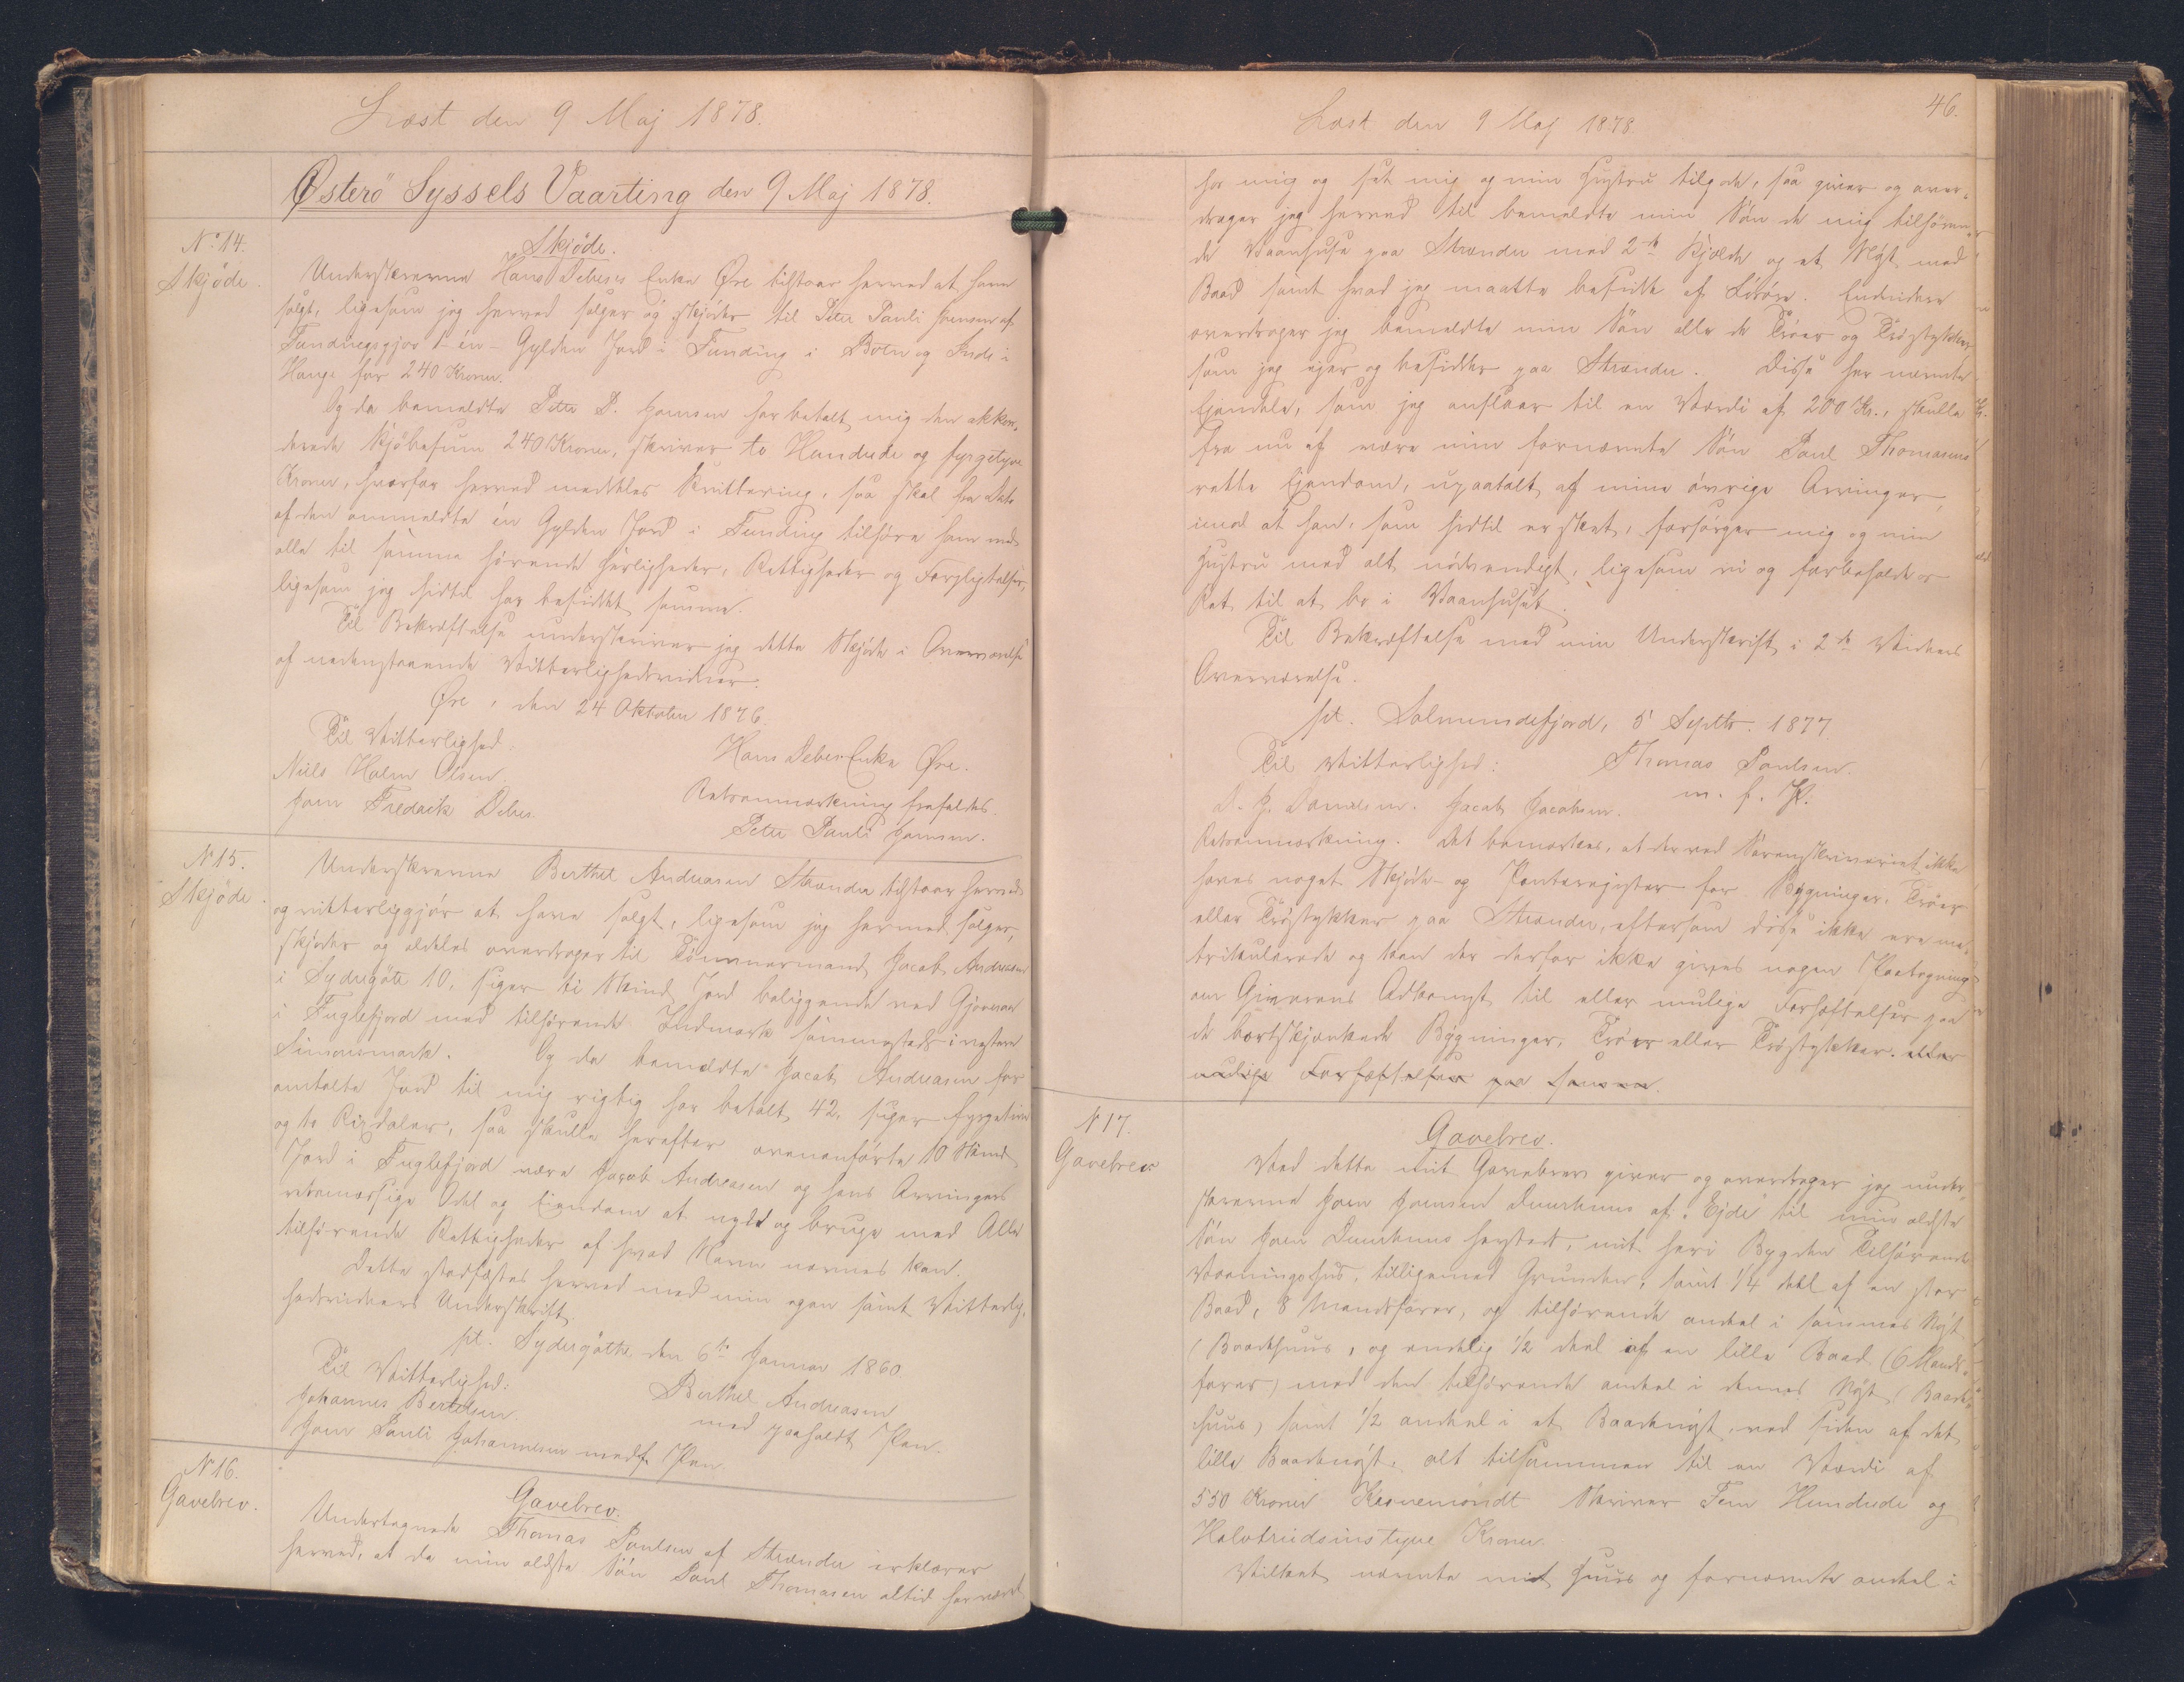 Læst den 9 Maj 1878.
Østerö Syssels Vaarting den 9 Maj 1878.
No 14.
Skjöde.
Skjöde.
Underskrevne Hans Debeses Enke Øre tilstaar herved at have
solgt, ligesom jeg herved sælger og skjöder til Peter Pauli Joensen af
Fundingsgjov 1 - en - Gylden Jord i Funding i Botn og Inde i
Hauge for 240 Kroner.
Og da bemeldte Peter P. Joensen har betalt mig den akkor-
derede Kjöbesum 240 Kroner, skriver to Hundrede og fyrgetyve
Kroner, hvorfor herved meddeles Kvittering, saa skal fra Dato
af den ommeldte én Gylden Jord i Funding tilhöre ham med
alle til samme hörende Herligheder, Rettigheder og Forpligtelser,
ligesom jeg hidtil har besiddet samme.
Til Bekræftelse underskriver jeg dette Skjöde i Overværelse
af nedenstaaende Vitterlighedsvidner.
Øre, den 24 Oktober 1876.
Til Vitterlighed:
Hans Debes Enke Øre.
Niels Holm Olsen.
Retsanmærkning frafaldes.
Joen Fredrik Debes.
Peter Pauli Joensen.
N 15.
Skjöde.
Underskrevne Berthel Andreasen Strænder tilstaar herved
og vitterliggjör at have solgt, ligesom jeg hermed sælger,
skjöder og aldeles overdrager til Tömmermand Jacob Andreasen
i Sydregöte 10, siger ti Skind Jord beliggende ved Gjovnar
i Fuglefjord med tilhörende Indmark sammesteds i vestre
Simonsmark. Og da bemeldte Jacob Andreasen for
omtalte Jord til mig rigtig har betalt 42, siger fyrgetive
og to Rigsdaler, saa skulle herefter ovenanförte 10 Skind
Jord i Fuglefjord være Jacob Andreasen og hans Arvingers
retmæssige Odel og Eiendom at nyde og bruge med Alle
tilhörende Rettigheder af hvad Navn nævnes kan.
Dette stadfæstes herved med min egen samt Vitterlig-
hedsvidners Underskrift.
pt. Sydregöthe den 6te Januar 1860
Til Vitterlighed:
Berthel Andreasen
Johannes Berthelsen.
med paaholdt Pen.
Joen Pauli Johannesen medf. Pen.
N 16.
Gavebrev.
Gavebrev.
Undertegnede Thomas Poulsen af Strænder erklærer
herved, at da min ældste Sön Poul Thomasen altid har været
46.
Læst den 9 Maj 1878.
hos mig og set mig og min Hustru tilgode, saa giver og over-
drager jeg herved til bemeldte min Sön de mig tilhören-
de Vaanhuse paa Strænder med 2de Hjælde og et Nöst med
Baad samt hvad jeg maatte besidde af Lösöre. Endvidere
overdrager jeg bemeldte min Sön alle de Tröer og Tröstykker
som jeg ejer og besidder paa Strænder. Disse her nævnte
Ejendele, som jeg anslaar til en Værdi af 200 Kr., skulle
fra nu af være min fornævnte Sön Poul Thomasens
rette Ejendom, upaatalt af mine övrige Arvinger,
imod at han, som hidtil er sket, forsörger mig og min
Hustru med alt nödvendigt, ligesom vi og forbeholde os
Ret til at bo i Vaanhuset.
Til Bekræftelse med min Underskrift i 2de Vidners
Overværelse.
pt. Solmundefjord, 5' Septbr. 1877
Til Vitterlighed:
Thomas Poulsen.
D. J. Danielsen. Jacob Jacobsen.
m. f. P.
Retsanmærkning. Det bemærkes, at der ved Sorenskriveriet ikke
haves noget Skjöde- og Panteregister for Bygninger, Tröer
eller Tröstykker paa Strænder, eftersom disse ikke ere ma-
trikulerede og kan der derfor ikke gives nogen Paategning
om Giverens Adkomst til eller mulige Forhæftelser paa
de bortskjænkede Bygninger, Tröer eller Tröstykker. eller
mulige Forhæftelser paa samme.
N 17.
Gavebrev
Gavebrev.
Ved dette mit Gavebrev giver og overdrager jeg under-
skrevne Joen Joensen Duurhuus af Ejde til min ældste
Sön Joen Duurhuus hersteds, mit her i Bygden Tilhörende
Vaaningshus, tilligemed Grunden, samt 1/4 deel af en stor
Baad, 8 Mandsfarer, og tilhörende andeel i sammes Nöst
(Baadehuus, og endelig 1/2 deel af en lille Baad (6 Mands-
farer) med den tilhörende andeel i dennes Nöst (Baade-
huus) samt 1/2 andeel i et Baadenöst, ved siden af det
lille Baadenöst, alt tilsammen til en Værdi af
550 Kroner Skriver Fem Hundrede og
Halvtredsinstyve Kroner.
Vilket nævnte mit Huus og fornævnte andeel i